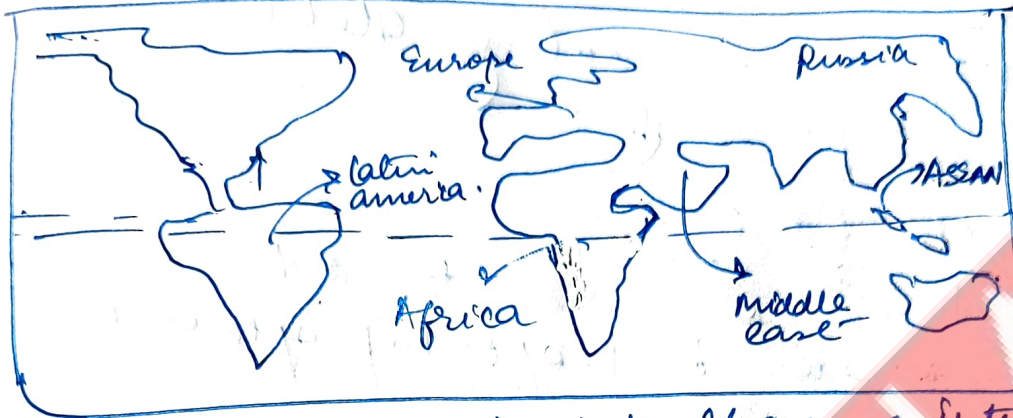 Europe
Russia
Latin
america.
ASSAN
Africa
Middle
East